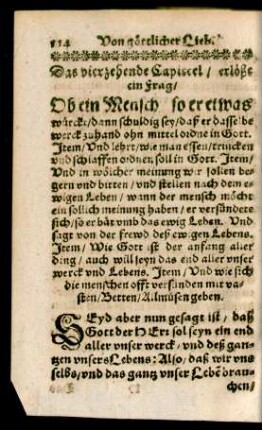 114 Von göttlicher Lieb.
Das vierzehende Capittel / erlößt
ein Frag /
Ob ein Mensch so er etwas
würckt / dann schuldig sey / daß er dasselbe
werck zuhand ohn mittel ordne in Gott.
Item / Vnd lehrt / wie man essen / trincken
vnd schlaffen ordnen soll in Gott. Item /
Vnd in wölcher meinung wir sollen be-
gern vnd bitten / vnd stellen nach dem e-
wigen Leben / wann der mensch möcht
ein sollich meinung haben / er versündete
sich / so er bät vmb das ewig Leben. Vnd
sagt von der frewd deß ewigen Lebens.
Item / Wie Gott ist der anfang aller
ding / auch will seyn das end aller vnser
werck vnd Lebens. Item / Vnd wie sich
die menschen offt versünden mit va-
sten / Betten / Allmüsen geben.
SEyd aber nun gesagt ist / daß
Gott der HErr sol seyn ein end
aller vnser werck / vnd deß gan-
tzen vnsers Lebens: Also / daß wir vns
selbs / vnd das gantz vnser Lebē brau-
chen /